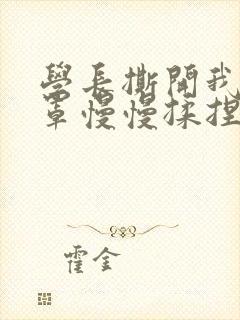 學長撕開我
罩慢慢揉捏
霍金